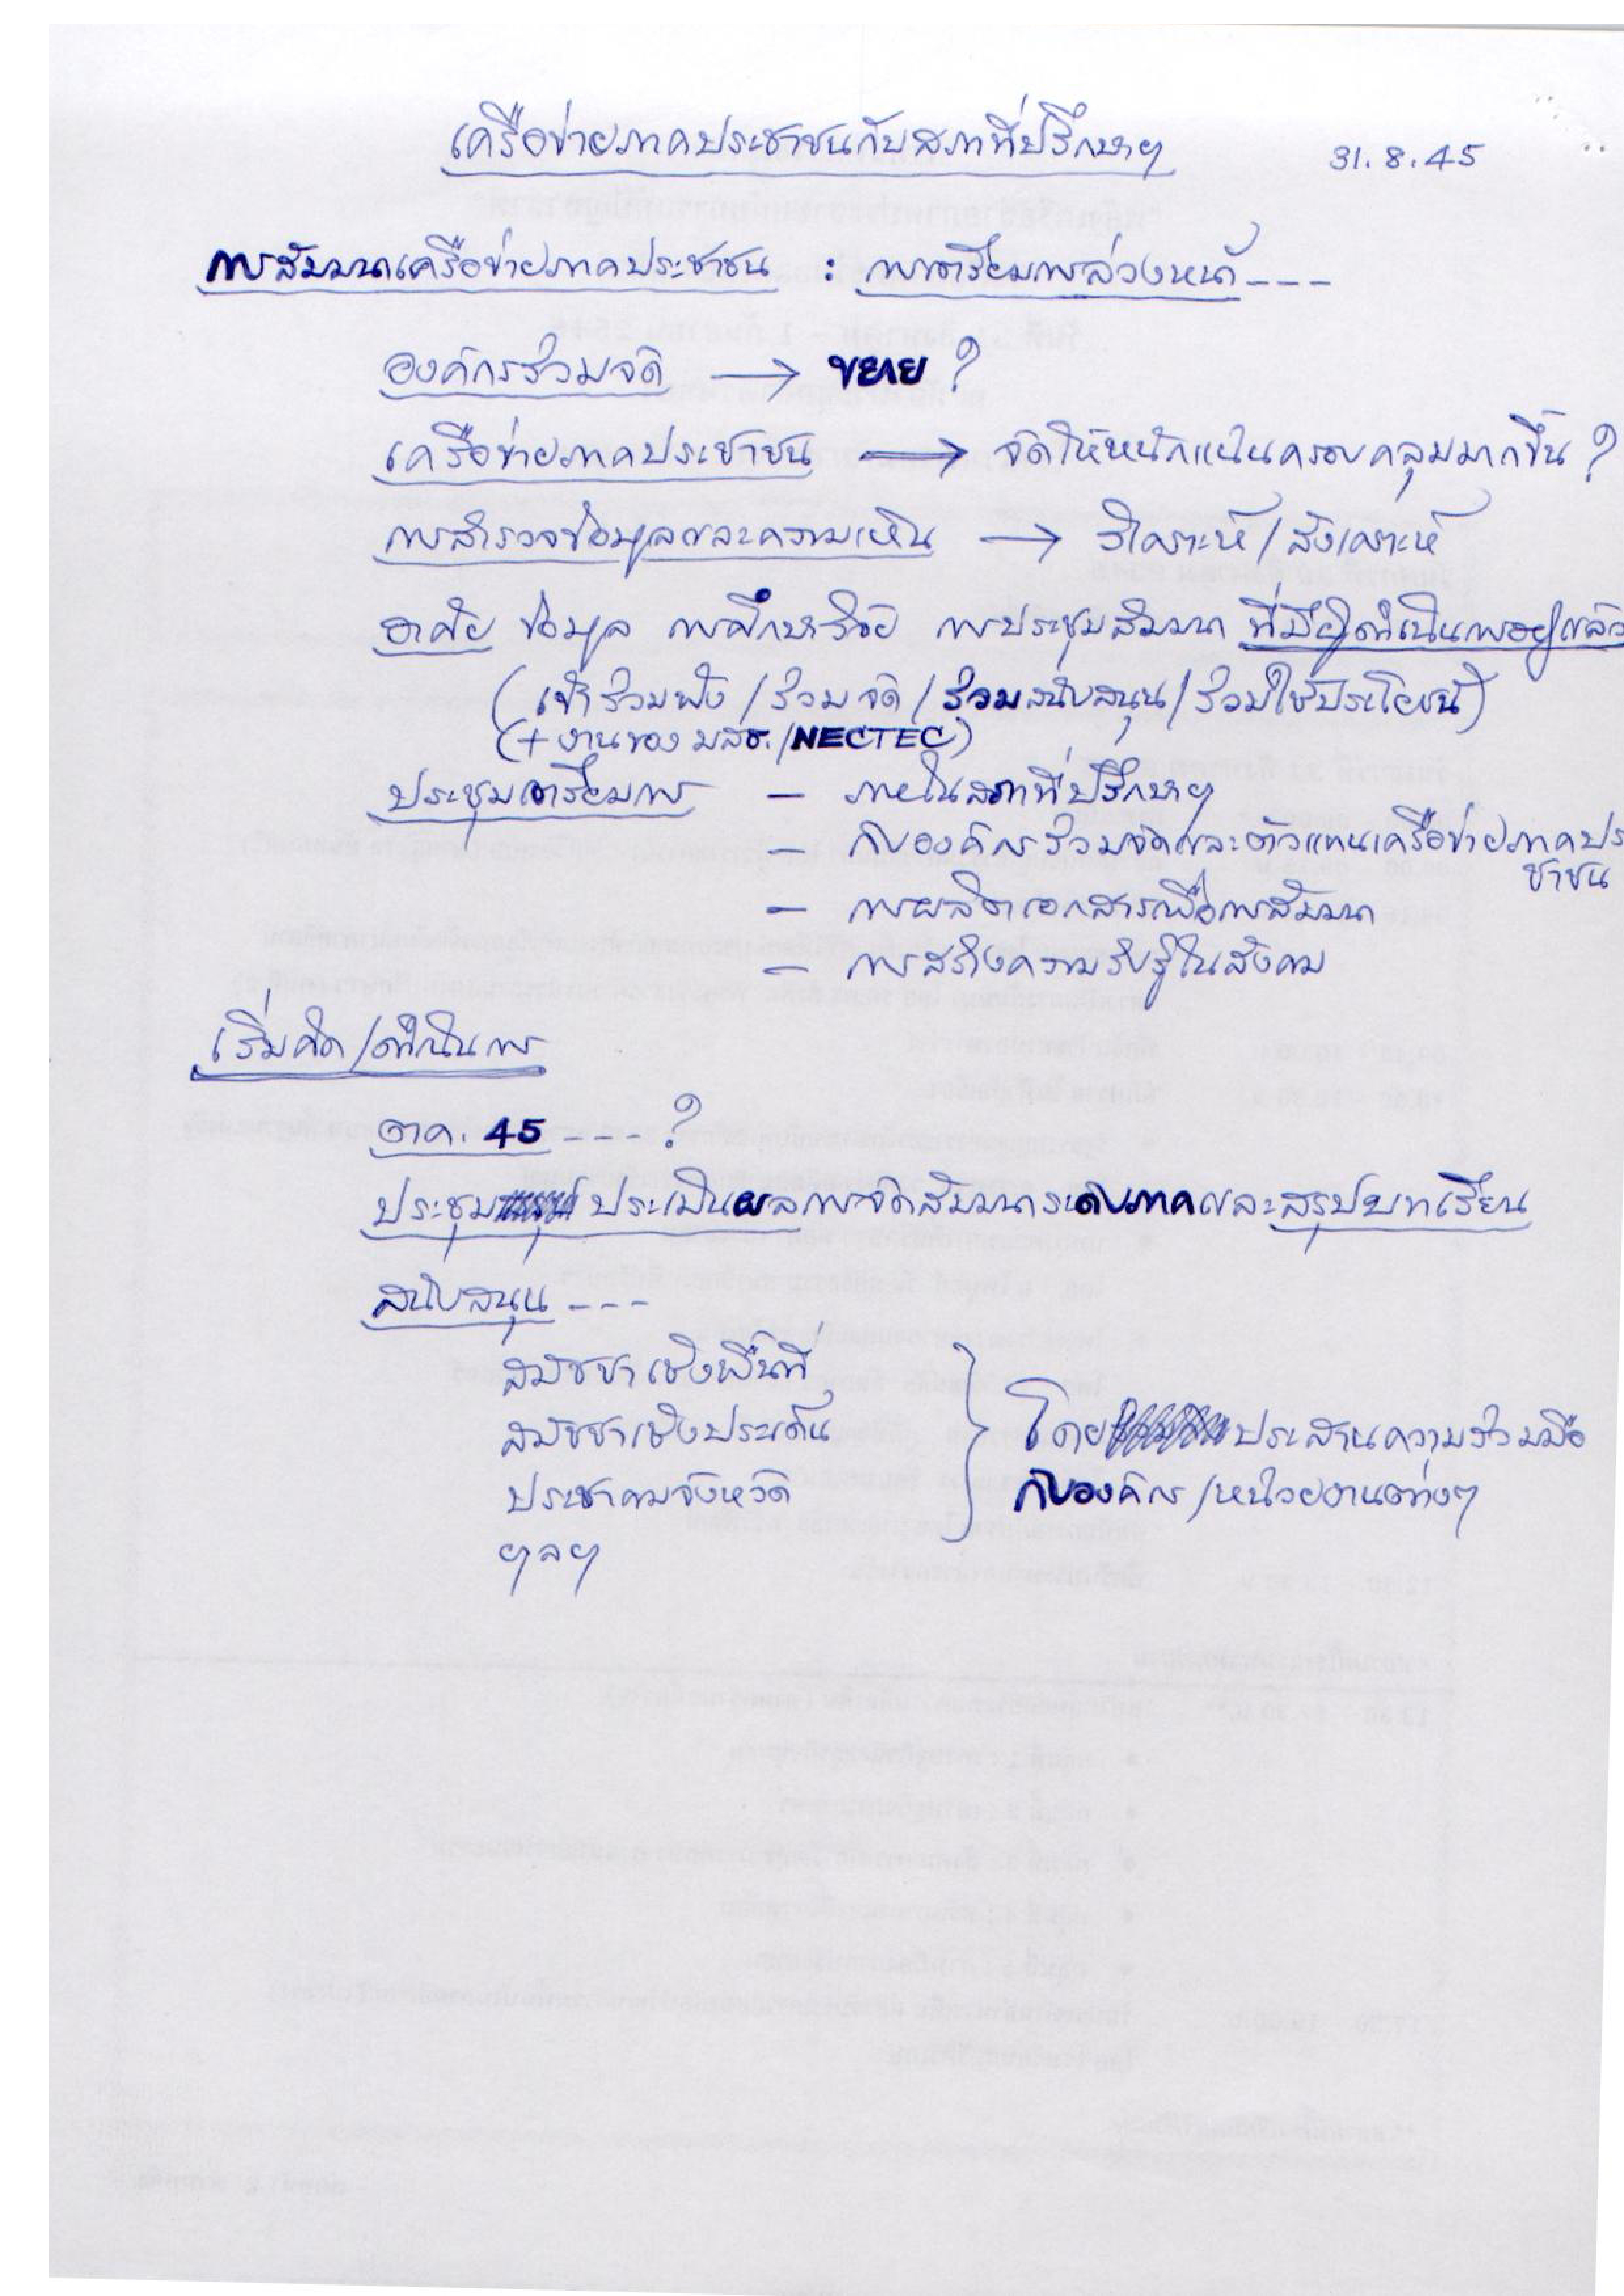 เครือข่ายภาคประชาชนกับสภาที่ปรึกษาฯ 31.8.45
การสัมมนาเครือข่ายภาคประชาชน : การเตรียมการล่วงหน้า----
องค์กรร่วมจัด → ขยาย ?
เครือข่ายภาคประชาชน → จัดให้หนักแน่นครอบคลุมมากขึ้น ?
การสำรวจข้อมูลและความเห็น → วิเคราะห์ / สังเคราะห์
อาศัย ข้อมูล การศึกษาวิจัย การประชุมสัมมนา ที่มีผู้ดำเนินการอยู่แล้ว
(เข้าร่วมฟัง / ร่วมจัด / ร่วมสนับสนุน / ร่วมใช้ประโยชน์)
(+ งานของ มสช. / NECTEC)
ประชุมเตรียมการ – ภายในสภาที่ปรึกษาฯ
– กับองค์กรร่วมจัดและตัวแทนเครือข่ายภาคประ
ชาชน
– การผลิตเอกสารเพื่อการสัมมนา
– การสร้างความรับรู้ในสังคม
เริ่มคิด / ดำเนินการ
ตค. 45 ---- ?
ประชุม ประเมินผลการจัดสัมมนาระดับภาคและสรุปบทเรียน
สนับสนุน ---
สมัชชาเชิงพื้นที่
สมัชชาเชิงประเด็น โดย ประสานความร่วมมือ
ประชาคมจังหวัด กับองค์กร / หน่วยงานต่างๆ
ฯลฯ